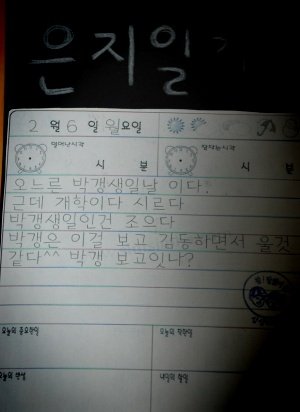 은지일
2 월 6 일 월요일
일어난시각
잠자는시각
시 분
시 분
오느르 박갱생일날 이다!
근데 개학이다 시르다
박갱생일인건 조으다
박갱은 이걸 보고 감동하면서 울것
같다^^ 박갱 보고잇나?
오늘의 중요한일
오늘의 착한일
오늘의 반성
내일의 할일